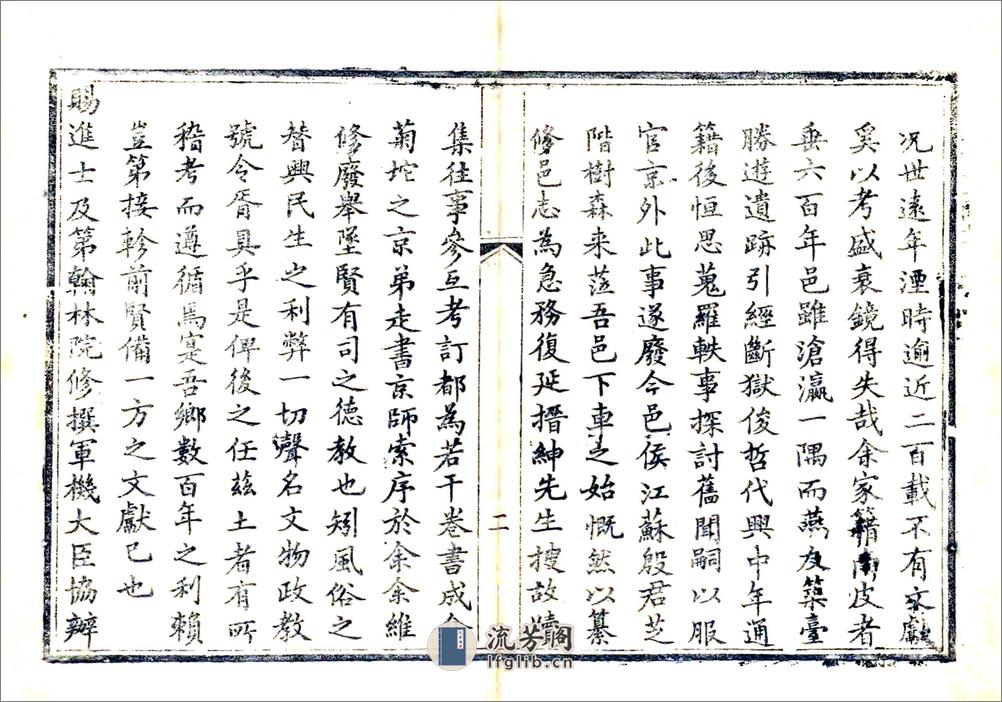 况世遠年湮時逾近二百載不有文獻
奚以考盛衰鏡得失哉余家籍南皮者
垂六百年邑雖滄瀛一隅而燕友築臺
勝遊遺跡引經斷獄俊哲代興中年通
籍後恒思蒐羅軼事探討舊聞嗣以服
官京外此事遂廢今邑侯江蘇殷君芝
階樹森来蒞吾邑下車之始慨然以纂
修邑志為急務復延搢紳先生搜故牘
二
集往事參互考訂都為若干卷書成
菊坨之京弟走書京師索序於余余維
修廢舉墜賢有司之德教也矧風俗之
替興民生之利弊一切聲名文物政教
號令胥具乎是俾後之任茲土者有所
稽考而遵循焉寔吾鄉數百年之利賴
豈第接軫前賢備一方之文獻已也
賜進士及第翰林院修撰軍機大臣協辦
流芳閣
lfglib.cn